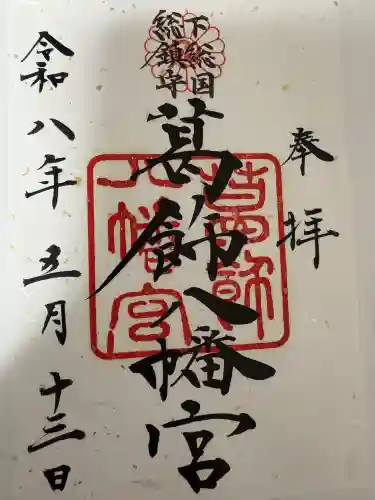 奉拝
下総国
総鎮守
葛飾八幡宮
葛飾
八幡宮
令和八年五月十三日